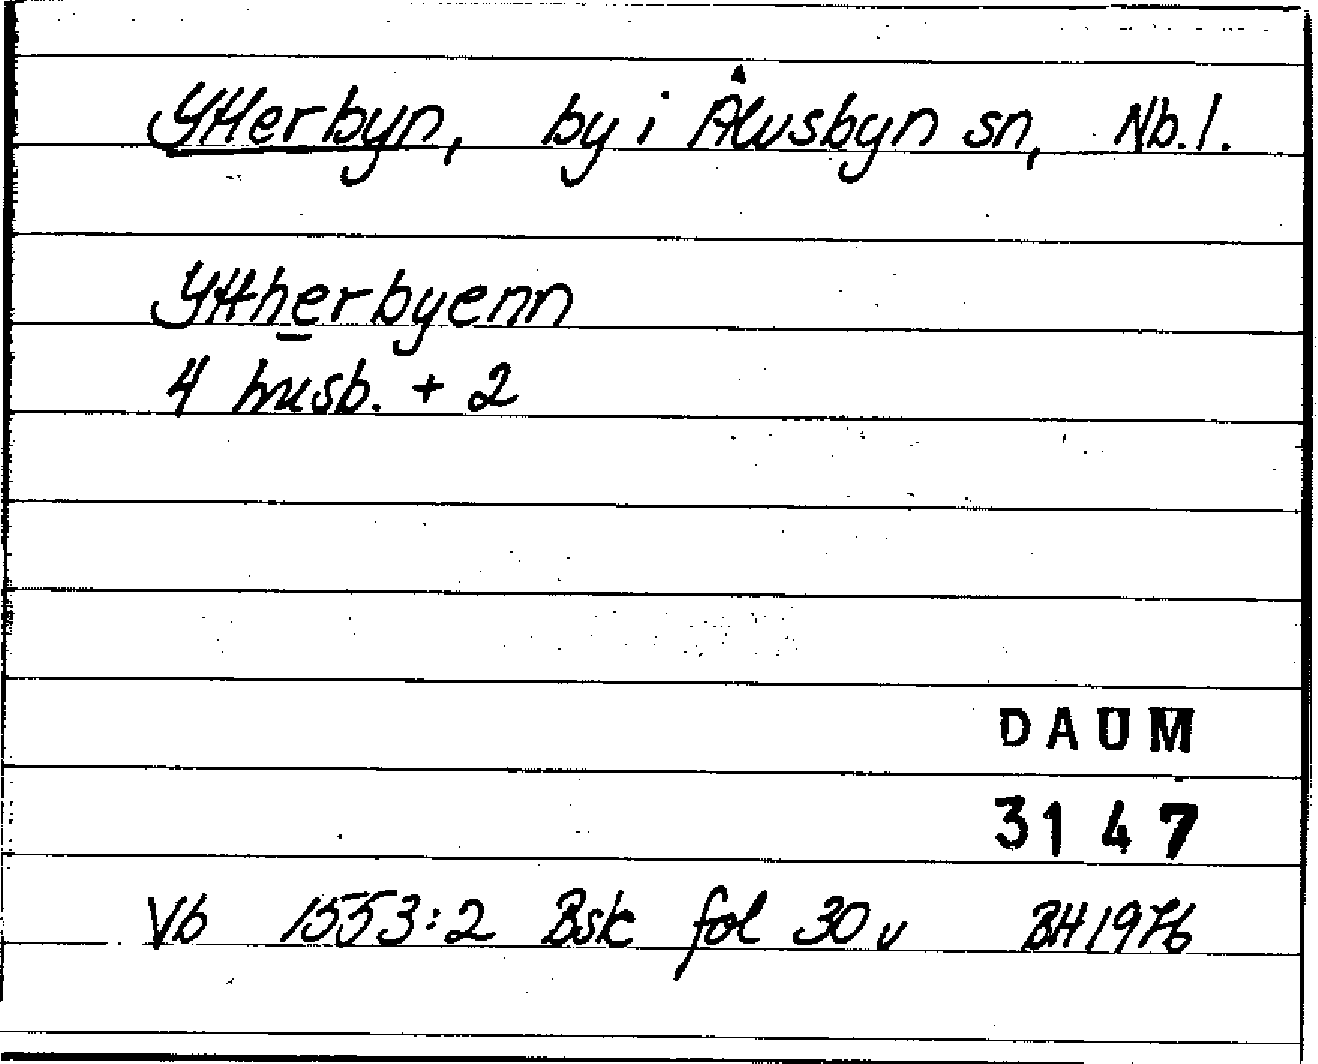 Ytterbyn, by i Älvsbyn sn, Nb.l.
Yttherbyenn
4 husb. + 2
DAUM
3147
Vb 1553:2 Bsk fol 30 v BH 1976